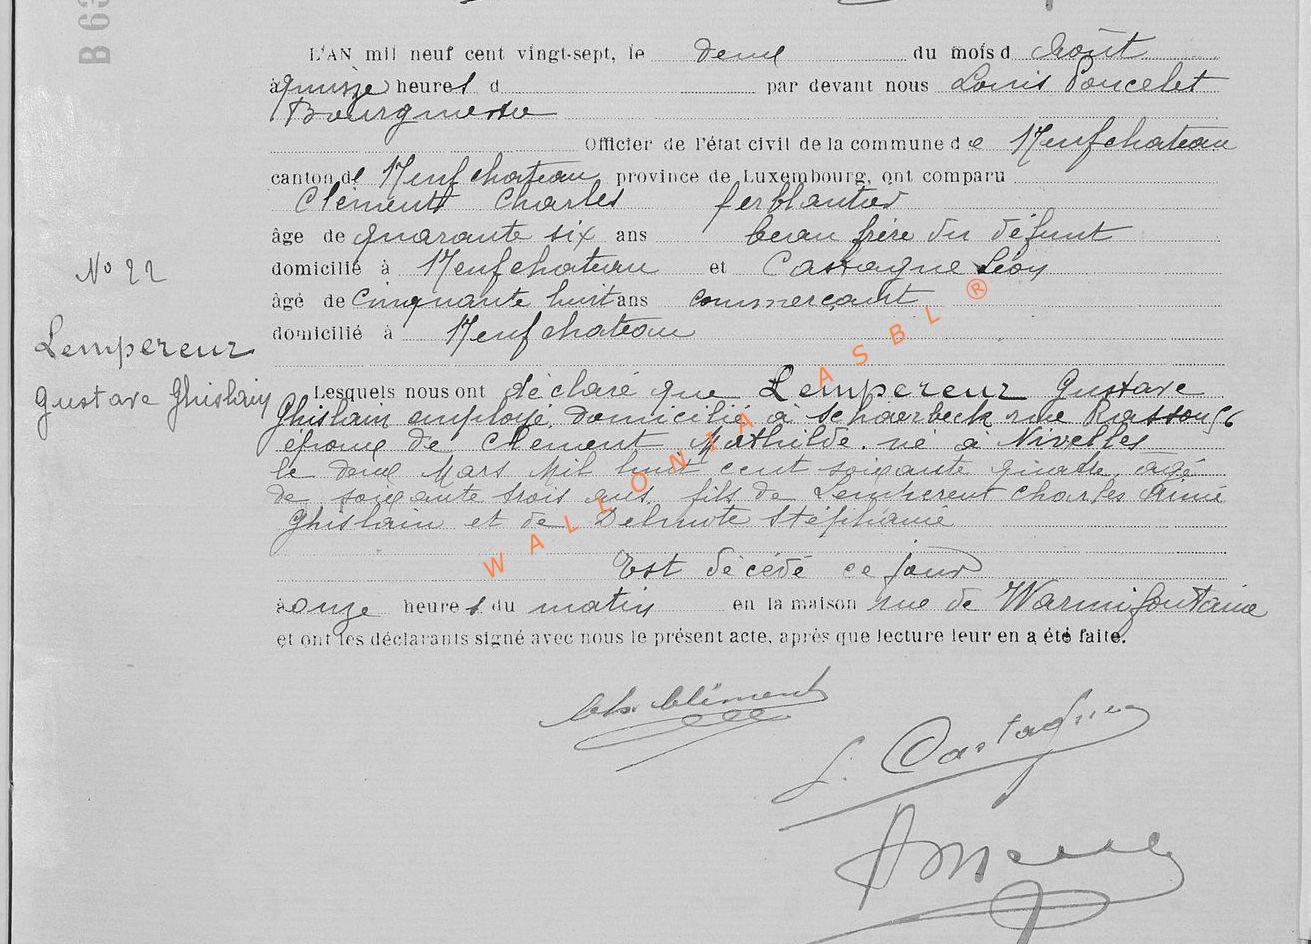 B 63
L'AN mil neuf cent vingt-sept, le deux du mois d'Août
à quinze heures d par devant nous Louis Poncelet
Bourgmestre
Officier de l'état civil de la commune de Neufchateau
canton de Neufchateau province de Luxembourg, ont comparu
Clément Charles ferblantier
âgé de quarante six ans beau frère du défunt
N° 22
domicilié à Neufchateau et Castagne Léon
âgé de cinquante huit ans commerçant
domicilié à Neufchateau
Lempereur
Gustave Ghislain
Lesquels nous ont déclaré que Lempereur Gustave
Ghislain employé, domicilié à Schaerbeck rue
époux de Clément Mathilde né à Nivelles
le deux Mars Mil huit cent soixante quatre âgé
de soixante trois ans, fils de Lempereur Charles Aimé
Ghislain et de Delmote Stéphanie
Est décédé ce jour
à onze heures du matin en la maison rue de Warmifontaine
et ont les déclarants signé avec nous le présent acte, après que lecture leur en a été faite.
WALLONIA ASBL ®
Chs Clément
L. Castagne